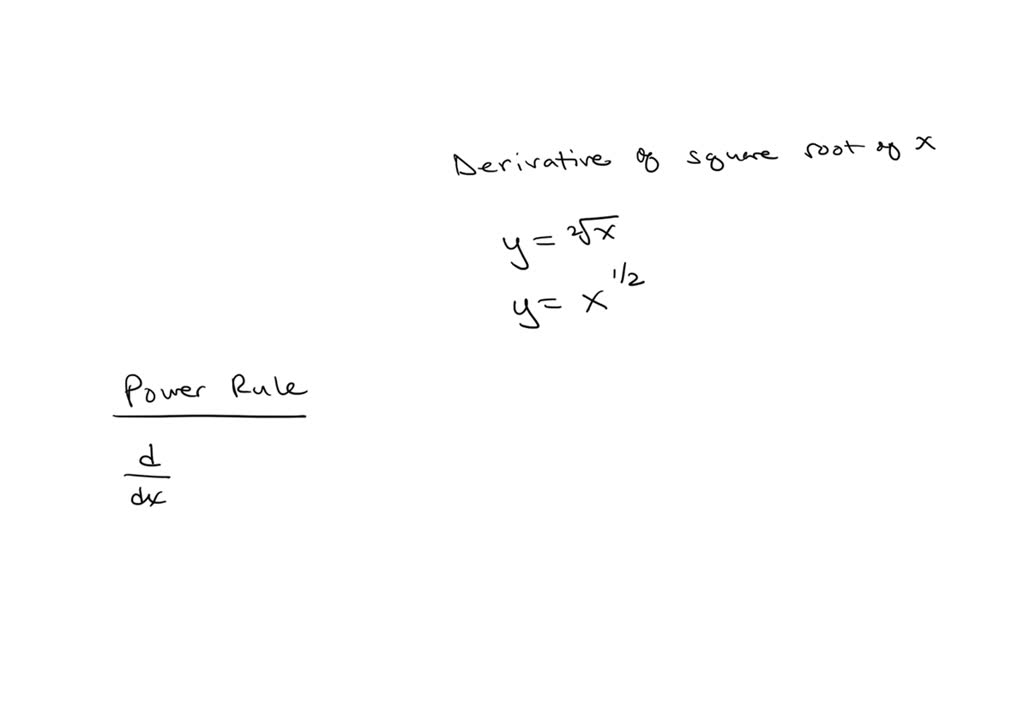 Derivative of square root of x
y = ²√x
y = x^1/2
Power Rule
d
dx